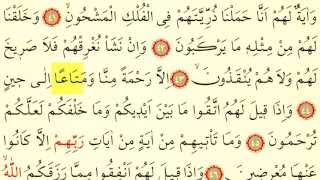 وَاٰيَةٌ لَهُمْ اَنَّا حَمَلْنَا ذُرِّيَّتَهُمْ فِي الْفُلْكِ الْمَشْحُونِۙ ﴿٤١﴾ وَخَلَقْنَا
لَهُمْ مِنْ مِثْلِهِ مَا يَرْكَبُونَ ﴿٤٢﴾ وَاِنْ نَشَأْ نُغْرِقْهُمْ فَلَا صَرِيخَ
لَهُمْ وَلَا هُمْ يُنْقَذُونَۙ ﴿٤٣﴾ اِلَّا رَحْمَةً مِنَّا وَمَتَاعًا اِلٰى حِينٍ
﴿٤٤﴾ وَاِذَا قِيلَ لَهُمُ اتَّقُوا مَا بَيْنَ اَيْدِيكُمْ وَمَا خَلْفَكُمْ لَعَلَّكُمْ
تُرْحَمُونَ ﴿٤٥﴾ وَمَا تَأْتِيهِمْ مِنْ اٰيَةٍ مِنْ اٰيَاتِ رَبِّهِمْ اِلَّا كَانُوا
عَنْهَا مُعْرِضِينَ ﴿٤٦﴾ وَاِذَا قِيلَ لَهُمْ اَنْفِقُوا مِمَّا رَزَقَكُمُ اللّٰهُ